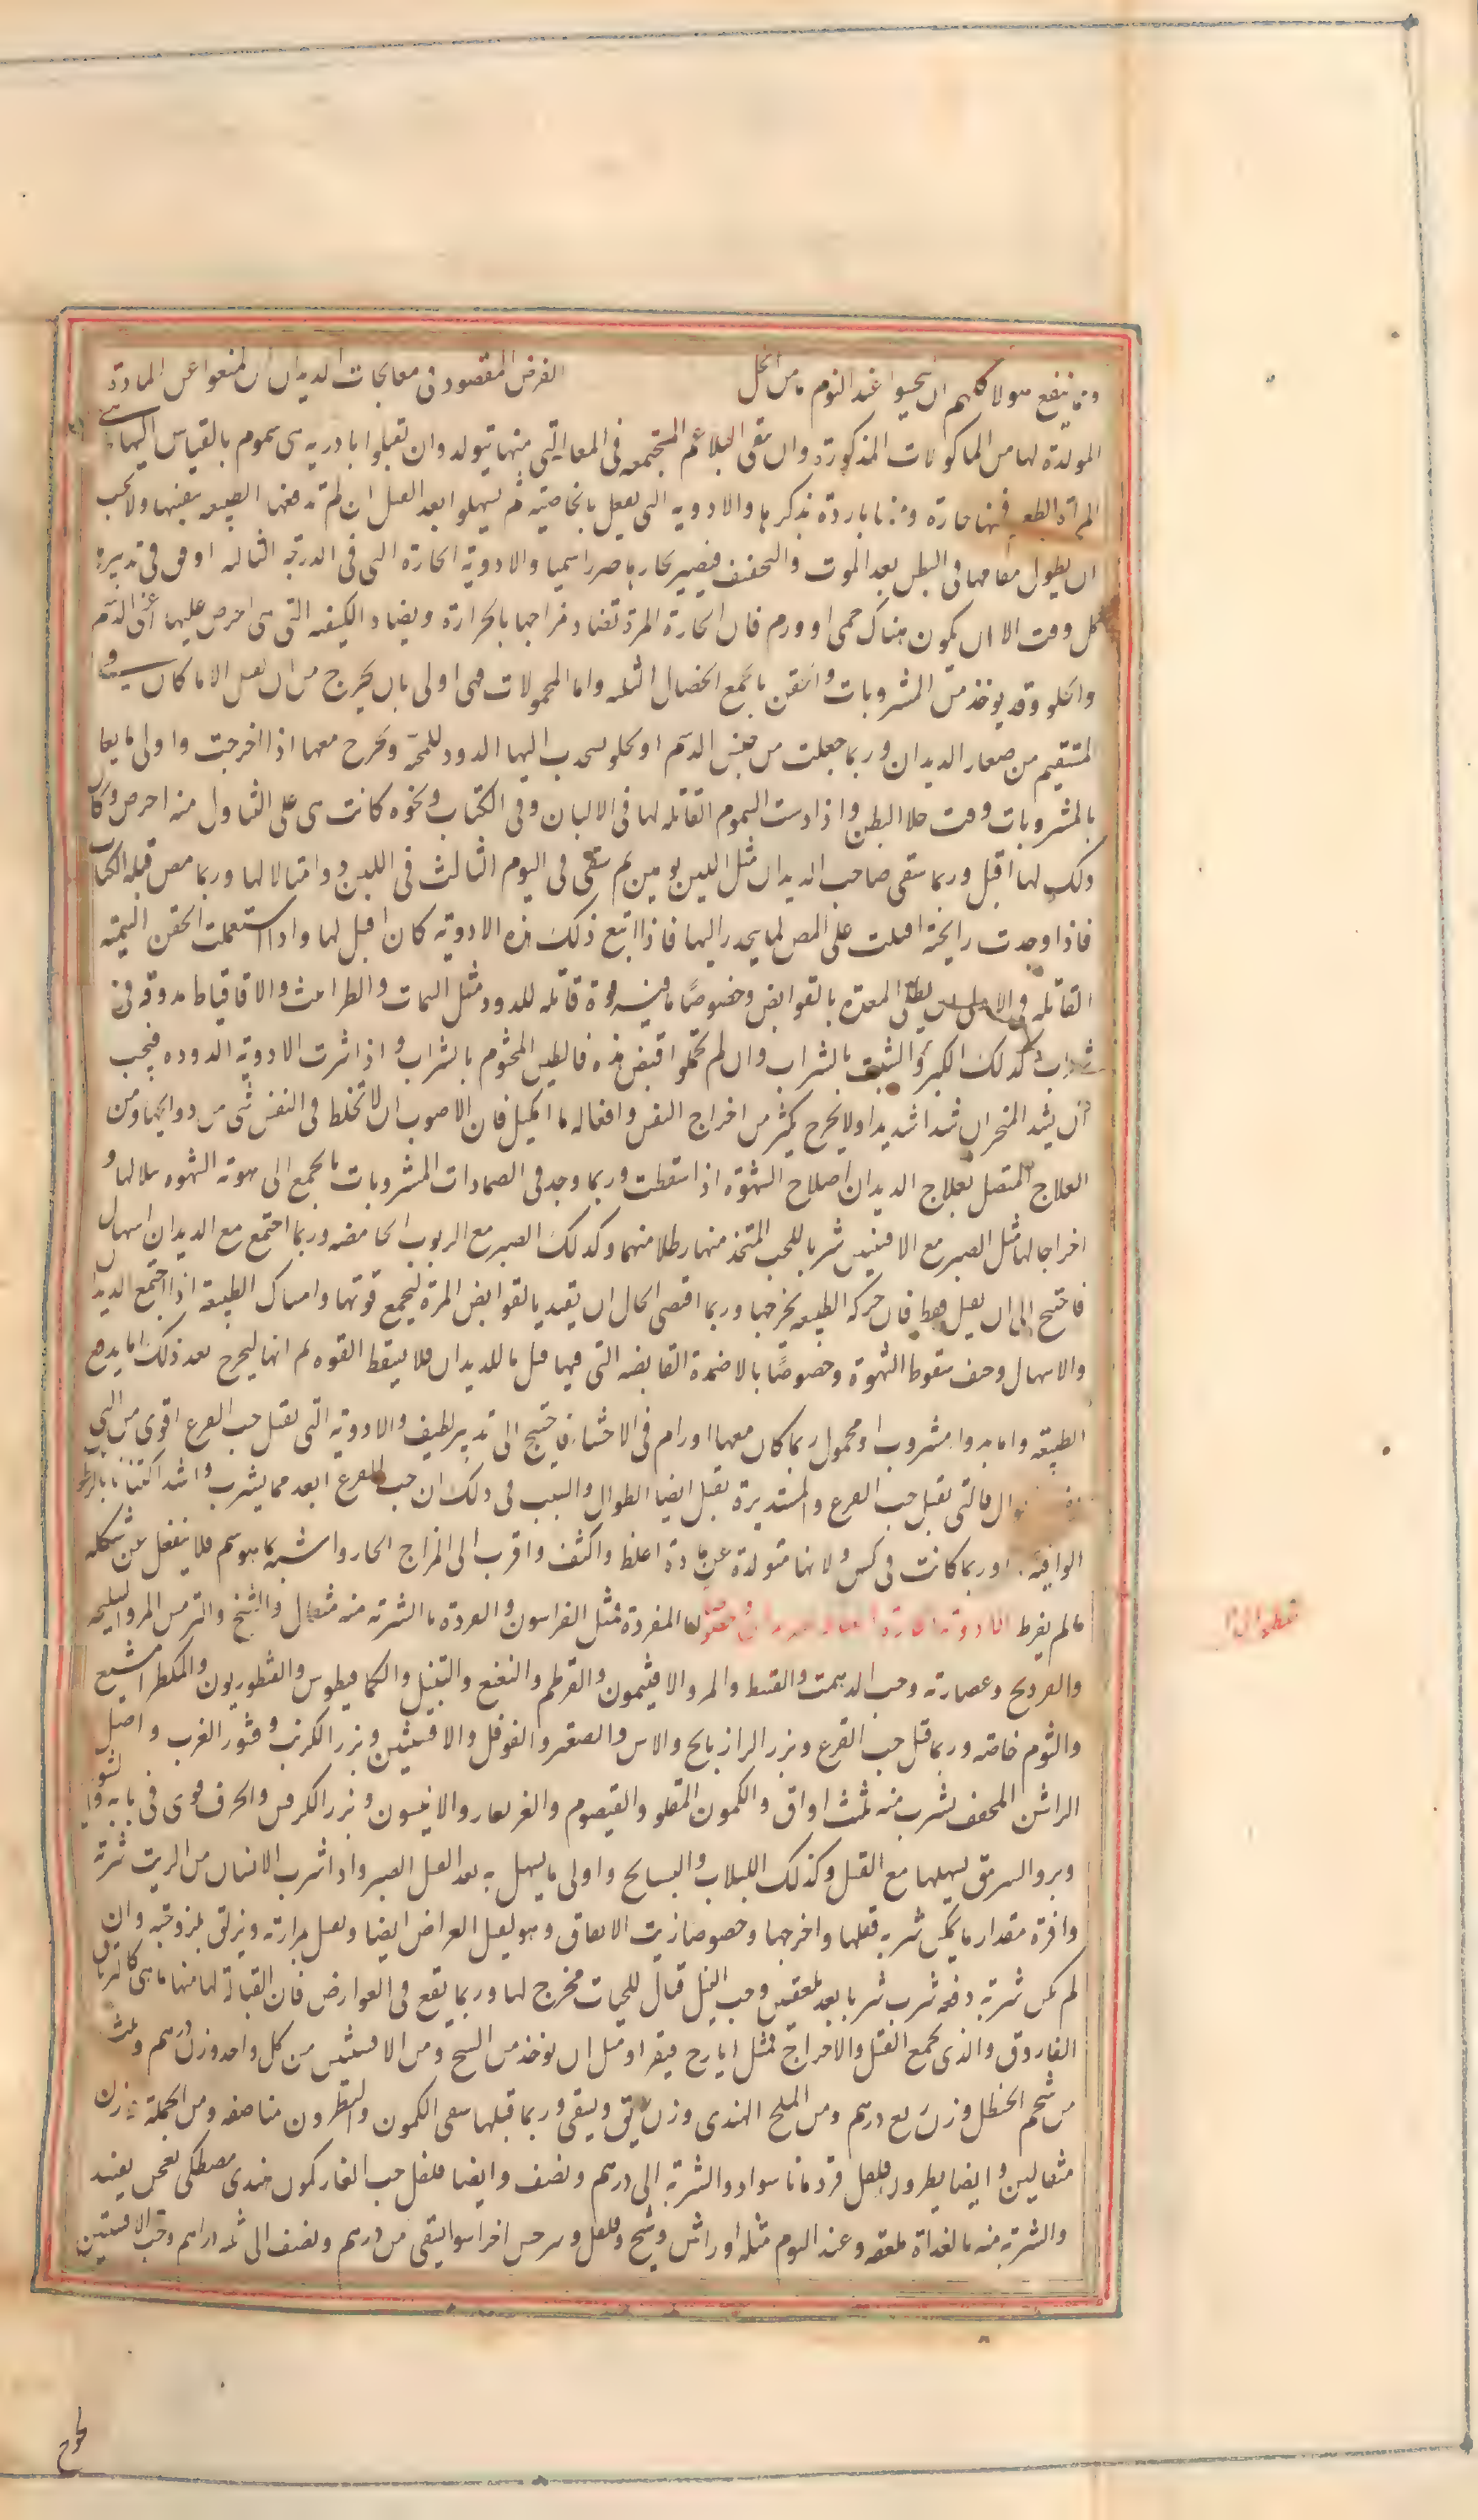 ومما ينفع هولا كلهم ان يتحسوا عند النوم ما من الخل الغرض المقصود فى معالجات الديدان ان يمنعوا عن المادة
المولدة لها من الماكولات المذكورة وان ينقى البلاغم المجتمعه فى المعا التى منها يتولد وان تقتلوا بادويه هى سموم بالقياس اليها و هى
المرة الطعم فمنها حارة ومنها باردة نذكرها والادويه التى تفعل بالخاصية ثم يسهلوا بعد القتل ان لم تدفعها الطبيعه بنفسها ولا يجب
ان يطول مقامها فى البطن بعد الموت والتجفف فيضر بخارها ضررا سميا والادوية الحارة التى فى الدرجة الثالثه اوفق فى تدبيرة
كل وقت الا ان يكون هناك حمى او ورم فان الحارة المرة تضاد مزاجها بالحرارة ويضاد الكيفيه التى هى احرص عليها اعنى الدسم
والحلو وقد يوخذ من المشروبات والحقن ما يجمع الخصال الثلثه واما المحمولات فهى اولى بان يخرج من ان يقتل الا ما كان فى
المستقيم من صغار الديدان وربما جعلت من جنس الدسم او الحلو لينجذب اليها الدود للمحبه ويخرج معها اذا اخرجت واولى ما يعا
بالمشروبات وقت خلا البطن واذا دست السموم القاتله لها فى الالبان وفى الكباب ونحوه كانت هى على التناول منه احرص وكان
ذلك لها اقتل وربما سقى صاحب الديدان مثل اللبن يومين ثم سقى فى اليوم الثالث فى اللبن دوا قتالا لها وربما مص قبله الكباب
فاذا وجدت رائحة اقبلت على المص لما ينحدر اليها فاذا اتبع ذلك هذه الادوية كان اقتل لها واذا استعملت الحقن السمية
القاتله فى الاسفل يطلى المعدة بالقوابض وخصوصا ما فيه قوة قاتله للدود مثل السماق والطراثيث والاقاقيا مدوفه فى
شراب كذلك الكبر والشبت بالشراب وان لم تحتملوا قبض هذه فالطين المختوم بالشراب واذا شربت الادوية الدوديه فيجب
ان يشد المنخران شدا شديدا ولا يخرج يكثر من اخراج النفس وادخاله ما امكن فان الاصوب ان لا تختلط فى النفس شى من روائحها ومن
العلاج المتصل بعلاج الديدان اصلاح الشهوة اذا سقطت وربما وجد فى الضمادات المشروبات ما يجمع الى تقوية الشهوه قتلا لها و
اخراجا لها مثل الصبر مع الافسنتين شربا للحب المتخذ منها وطلا منهما وكذلك الصبر مع الربوب الحامضه وربما اجتمع مع الديدان اسهال
فاحتيج الى ان يقتل فقط فان حركه الطبيعه تخرجها وربما اقتضى الحال ان يقتل بالقوابض المرة ليجمع قوتها وامساك الطبيعه اذا اجتمع الديدان
والاسهال وخف سقوط الشهوة وخصوصا بالاضمدة القابضه التى فيها قتل ما للديدان فلا يسقط القوه ثم انها ليخرج بعد ذلك اما بدفع
الطبيعه واما بدوا مشروب او محمول ربما كان معها اورام فى الاحشاء فاحتيج الى تدبير لطيف والادوية التى تقتل حب القرع اقوى من التى
الطوال فالتى تقتل حب القرع والمستديرة تقتل ايضا الطوال والسبب فى ذلك ان حب القرع ابعد مما يشرب واشد اكتنانا بالرطو
الواقيه او ربما كانت فى كيس ولانها متولدة عن مادة اغلظ واكثف واقرب الى المزاج الحار واشبه بما هو سم فلا ينفعل عن شكله
ما لم يفرط المفردة مثل الفراسيون والقردمانا الشربة منه مثقال والشيح والترمس المر والسليخه
والفوذنج وعصارته وحب الدهمست والقسط والمر والافتيمون والقرطم والنعنع والقنبيل والكمافيطوس والقنطوريون والمشكطرامشيع
والثوم خاصه وربما قتل حب القرع وبزر الرازيانج والاس والصعتر والفوفل والافسنتين وبزر الكرنب وقشور الغرب واصل
الراسن المجفف يشرب منه ثلث اواق والكمون المقلو والقيصوم والانيسون وبزر الكرفس والحرف قوى فى بابه ولشو
وبزر السرمق يسهلها مع القتل وكذلك اللبلاب والبسايج واولى ما يسهل به بعد القتل الصبر واذا شرب الانسان من الزيت شربة
وافرة مقدار ما يمكن شربه قتلها واخرجها وخصوصا زيت الانفاق وهو يقتل العراض ايضا ويقتل بمرارته ويزلق بلزوجته وان
لم يمكن شربة دفعه شرب شربا بعد ملعقتين وحب النيل قتال للحيات مخرج لها وربما يقع فى العوارض فان القتالة لها منها ما هى كالترياق
الفاروق والذى يجمع القتل والاخراج مثل ايارج فيقرا ومثل ان يوخذ من الشيح ومن الافسنتين من كل واحد وزن درهم وثلث
من شحم الحنظل وزن ربع درهم ومن الملح الهندى وزن دانق ويسقى وربما قتلها سقى الكمون والنطرون مناصفه ومن الجملة وزن
مثقالين وايضا نطرون فلفل قردمانا سوا والشربة الى درهم ونصف وايضا فلفل حب الغار كمون هندى مصطكى يعجن بعسل
والشربة منه بالغداة ملعقه وعند النوم مثله او راسن وشيح وفلفل وسرخس اجزا سوا يسقى من درهم ونصف الى ثلثه دراهم وحب الافسنتين